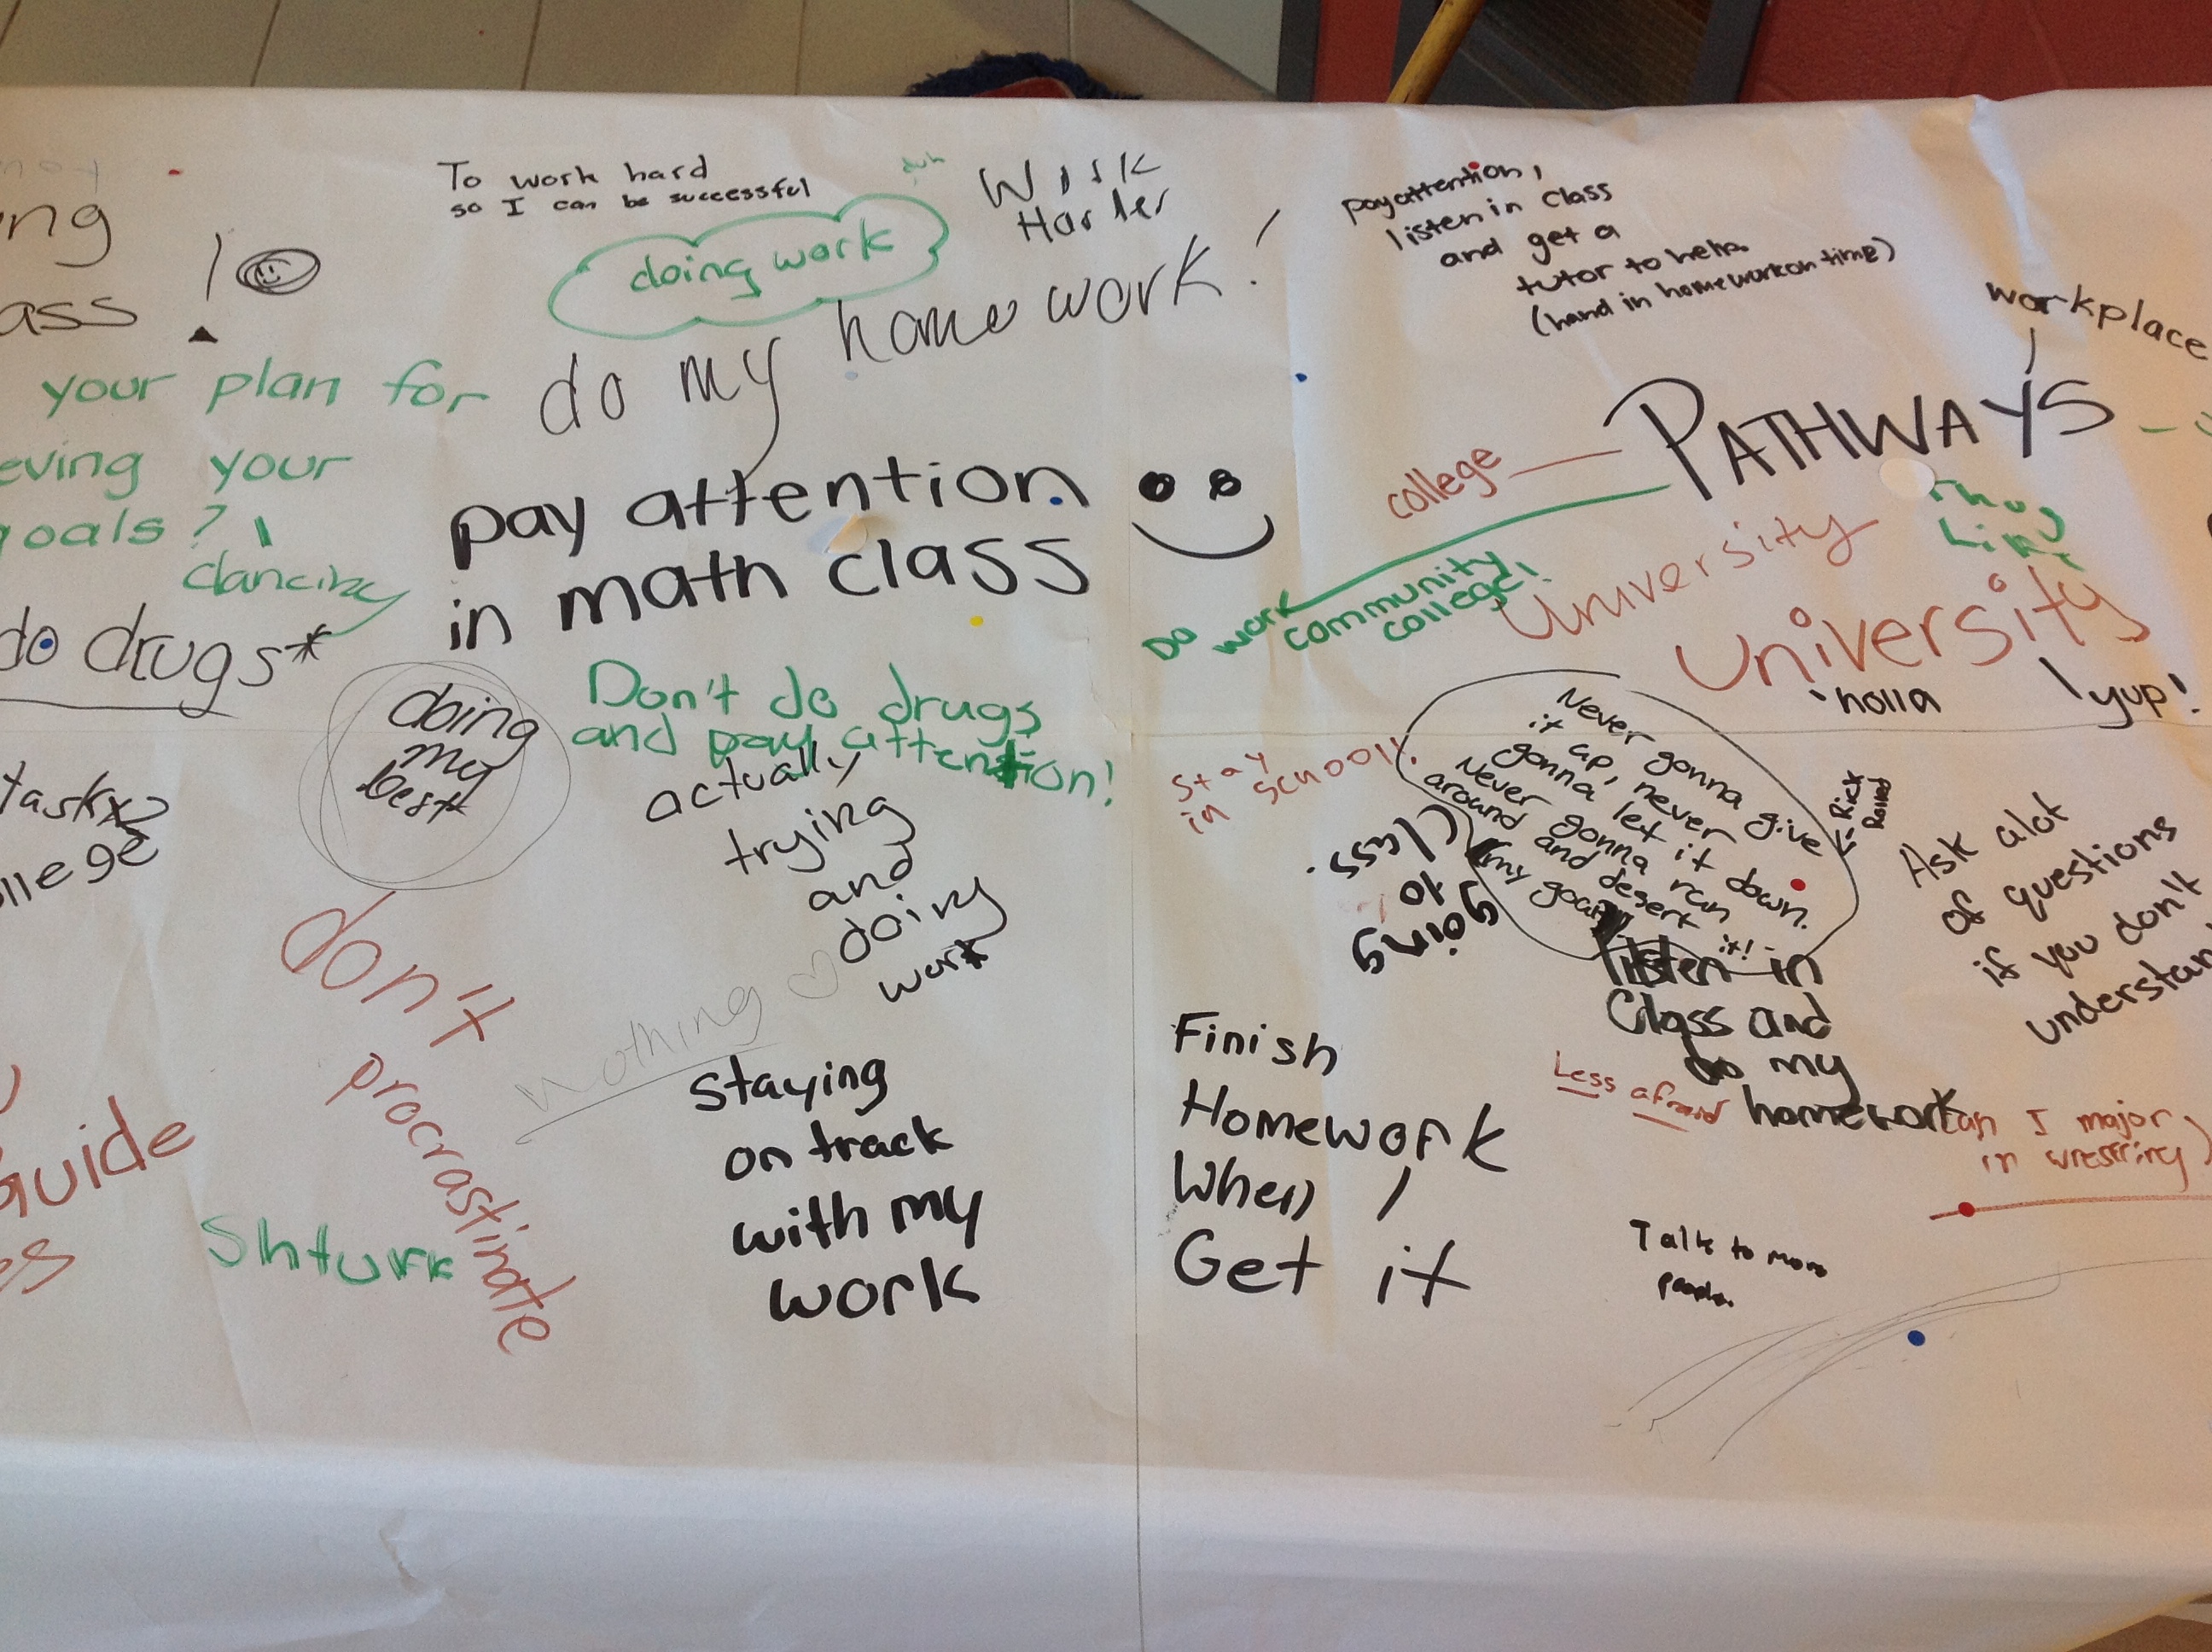 To work hard
so I can be successful
duh
doing work
Work
Harder
do my homework!
pay attention,
listen in class
and get a
tutor to help
(hand in homework on time)
workplace
PATHWAYS
college
Thug
Life
University
University
Do work community
college!
'holla
yup!
your plan for
eving your
goals?
dancing
do drugs*
pay attention
in math class
Don't do drugs
and pay attention!
doing
my
best
actually
trying
and
doing
work
nothing
don't
procrastinate
Staying
on track
with my
work
stay
in school!
going
to
class.
Never gonna give
it up, never
gonna let it down.
Never gonna run
around and desert it!
(my goal)
Rick
Rolled
Ask alot
of questions
if you don't
listen in
Class and
do my
homework
Less afraid
Finish
Homework
When I
Get it
I major
in wrestling
Talk to more
people.
task
guide